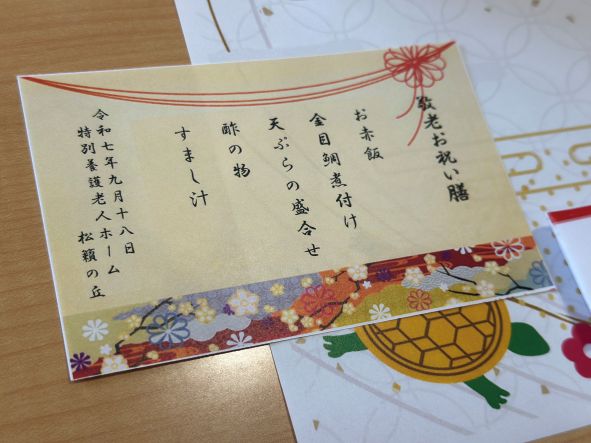 敬老お祝い膳
お赤飯
金目鯛煮付け
天ぷらの盛合せ
酢の物
すまし汁
令和七年九月十八日
特別養護老人ホーム
松籟の丘